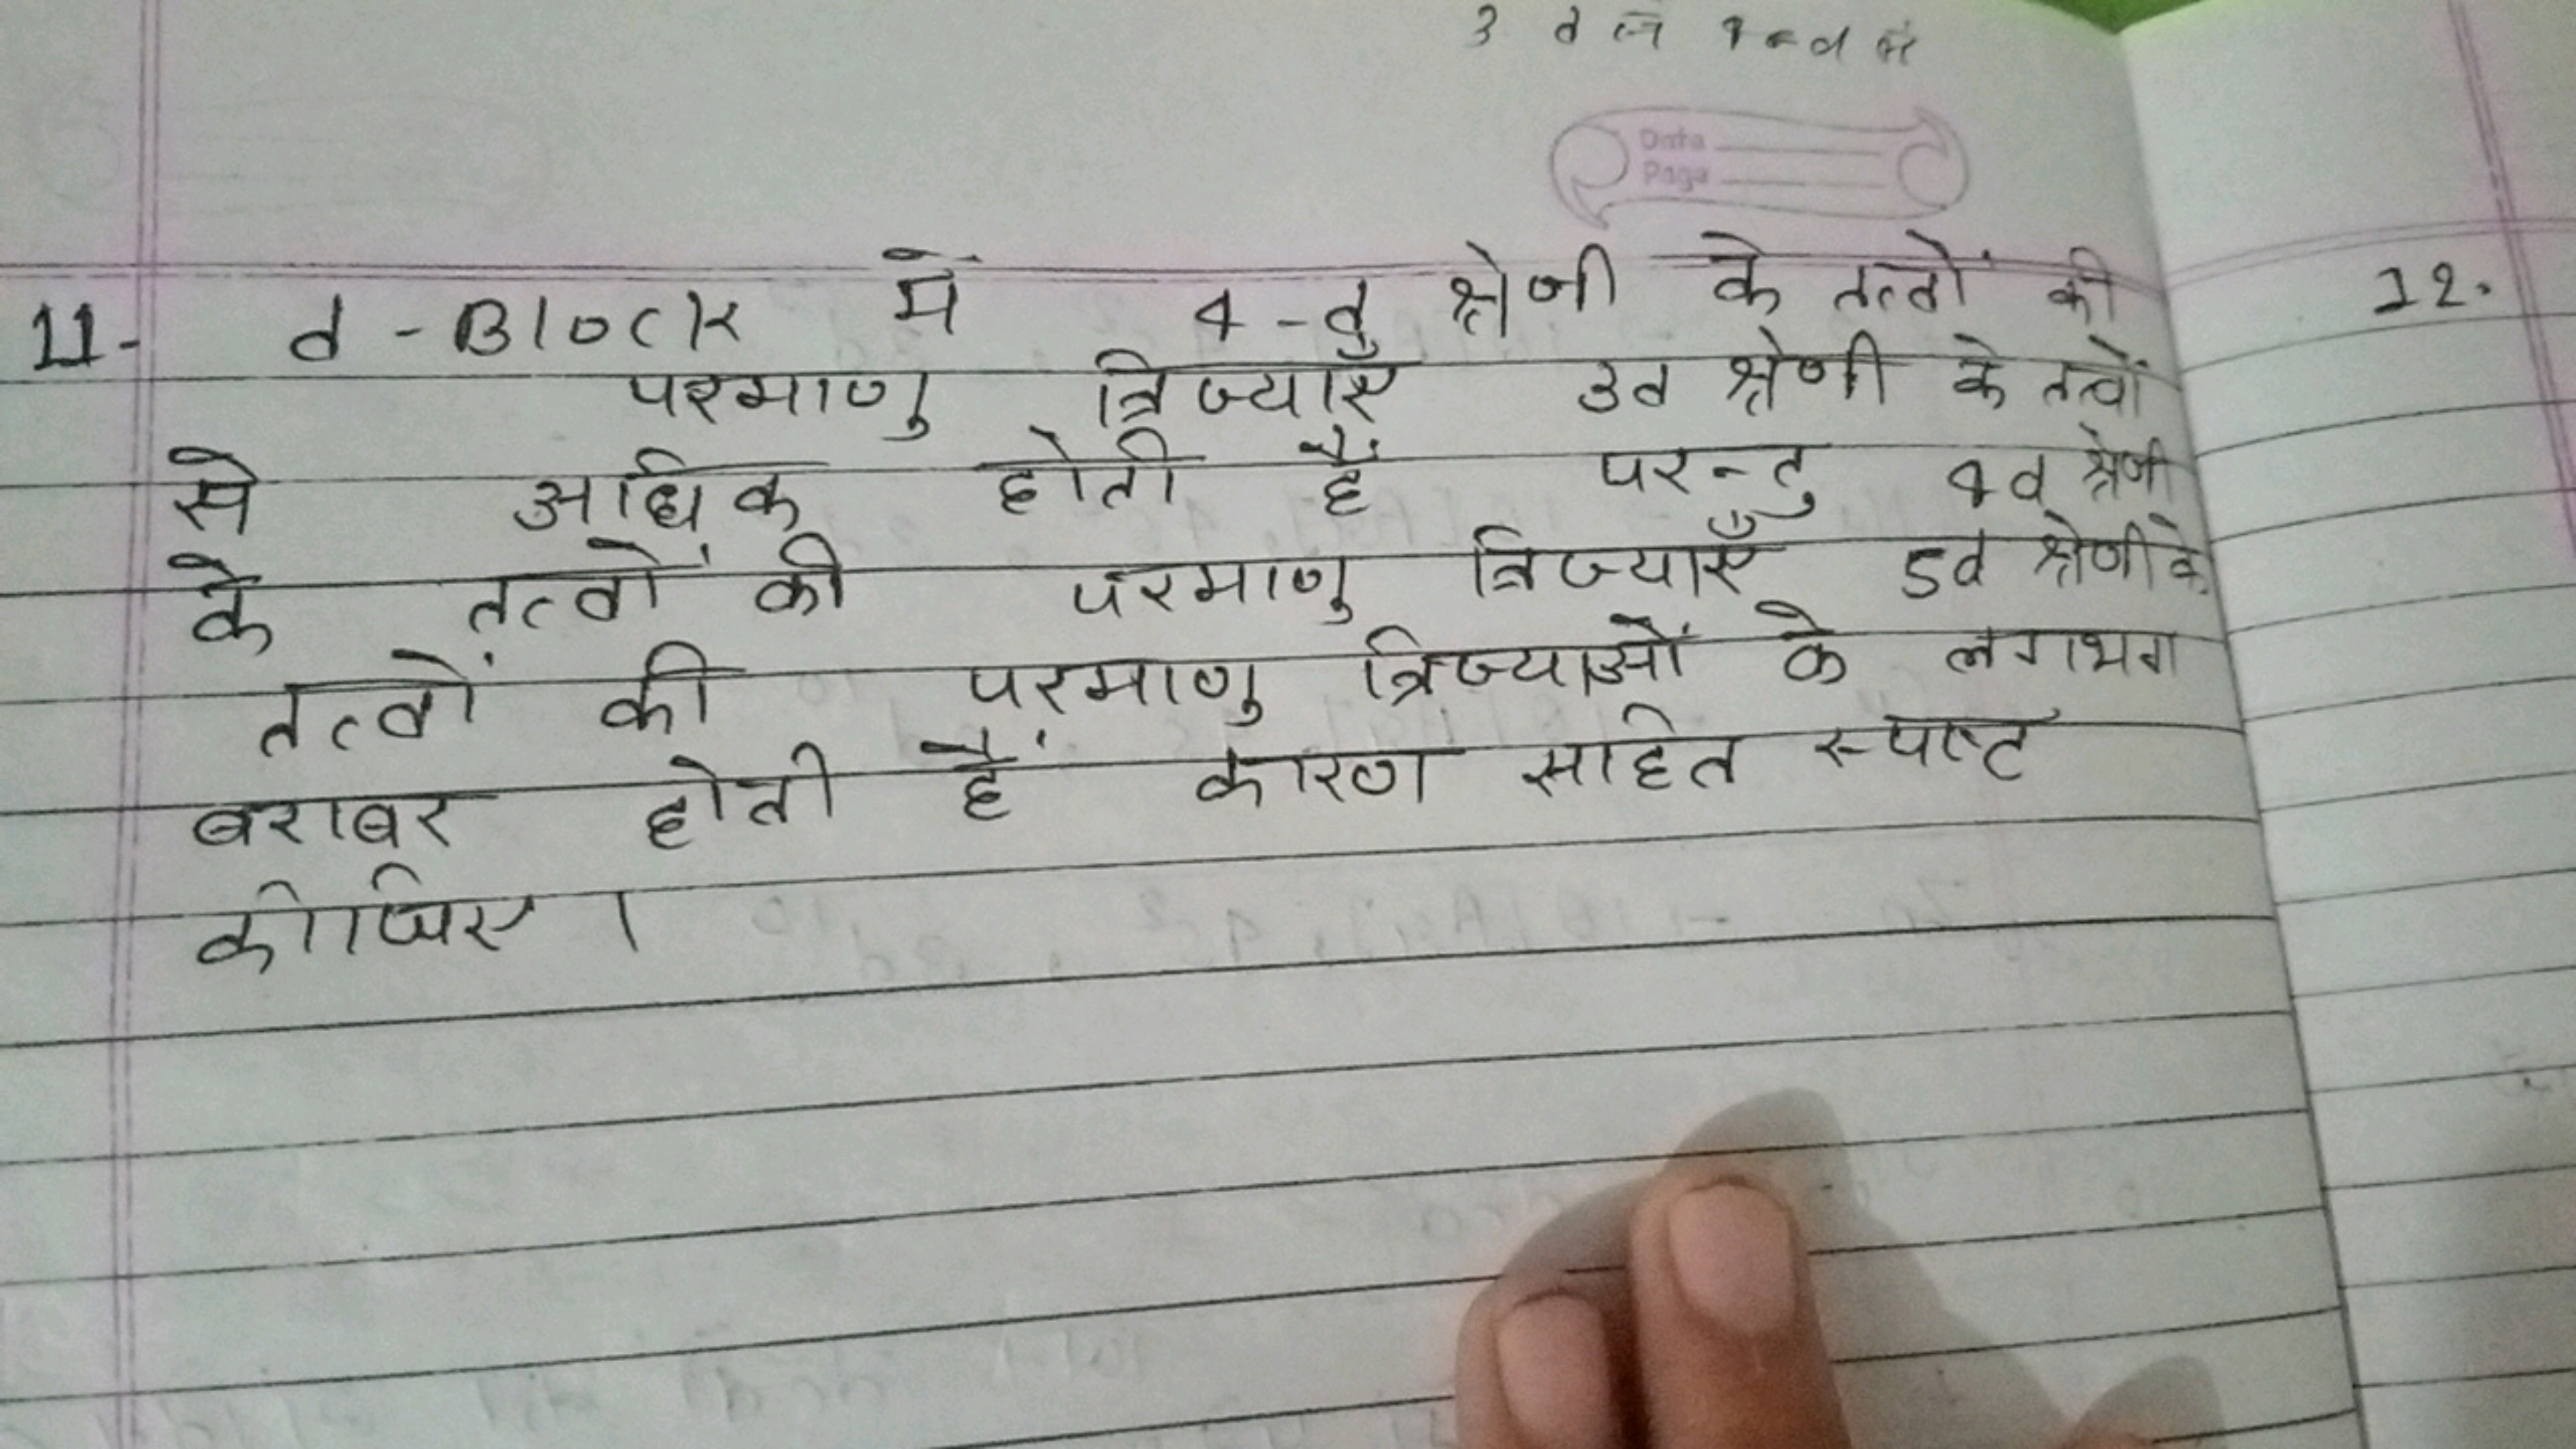 Data
Page
11- d-Block में 4-d श्रेणी के तत्वों की
परमाणु त्रिज्याएँ 3d श्रेणी के तत्वों
से अधिक होती हैं परन्तु 4d श्रेणी
के तत्वों की परमाणु त्रिज्याएँ 5d श्रेणी के
तत्वों की परमाणु त्रिज्याओं के लगभग
बराबर होती हैं कारण सहित स्पष्ट
कीजिए ।
12.